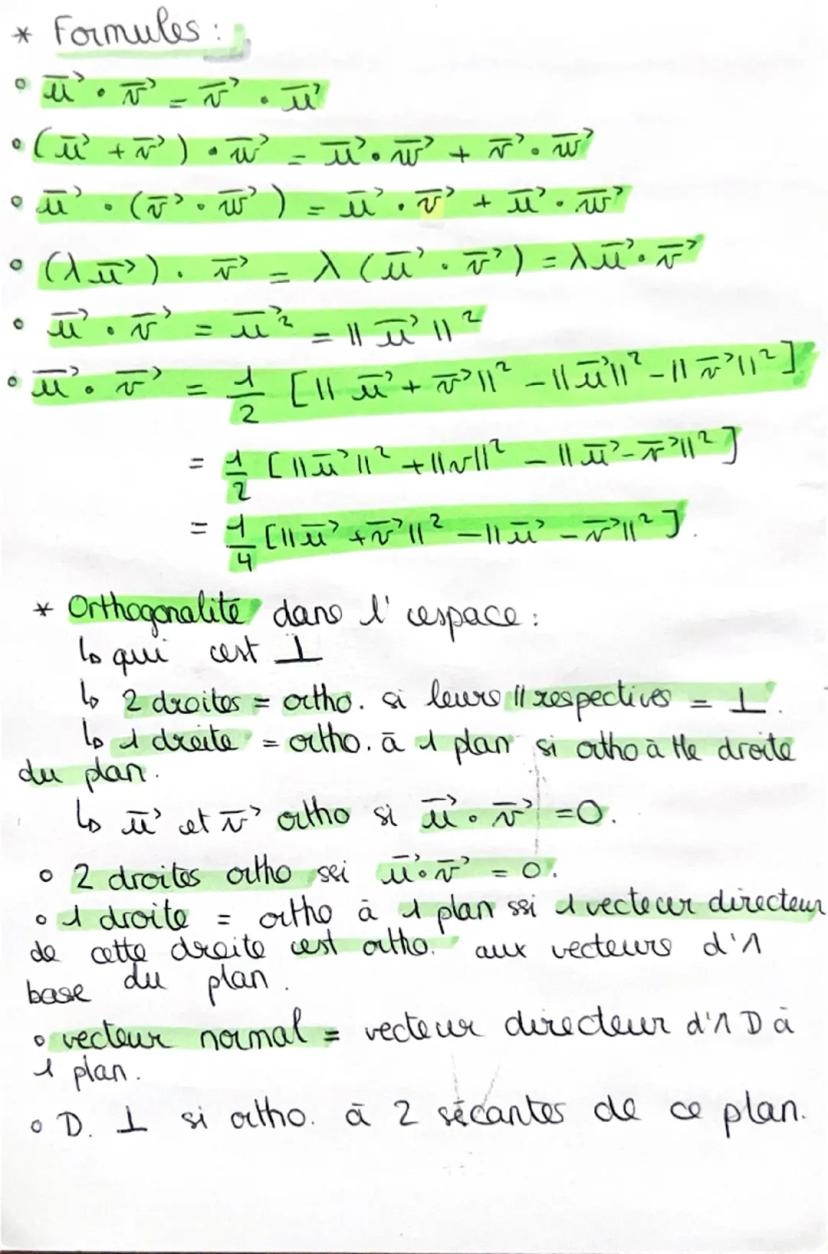 * Formules :
° u⃗ • v⃗ = v⃗ • u⃗
° (u⃗ + v⃗) • w⃗ = u⃗ • w⃗ + v⃗ • w⃗
° u⃗ • (v⃗ • w⃗) = u⃗ • v⃗ + u⃗ • w⃗
° (λu⃗) • v⃗ = λ (u⃗ • v⃗) = λu⃗ • v⃗
° u⃗ • v⃗ = u⃗² = ||u⃗||²
° u⃗ • v⃗ = 1/2 [||u⃗ + v⃗||² - ||u⃗||² - ||v⃗||²]
= 1/2 [||u⃗||² + ||v||² - ||u⃗ - v⃗||²]
= 1/4 [||u⃗ + v⃗||² - ||u⃗ - v⃗||²].
* Orthogonalité dans l'espace :
↳ qui est ⊥
↳ 2 droites = ortho. si leurs // respectives = ⊥.
↳ 1 droite = ortho. à 1 plan si ortho à tte droite
du plan.
↳ u⃗ et v⃗ ortho si u⃗ • v⃗ = 0.
° 2 droites ortho ssi u⃗ • v⃗ = 0.
° 1 droite = ortho à 1 plan ssi 1 vecteur directeur
de cette droite est ortho. aux vecteurs d'1
base du plan.
° vecteur normal = vecteur directeur d'1 D à
1 plan.
° D. ⊥ si ortho. à 2 sécantes de ce plan.